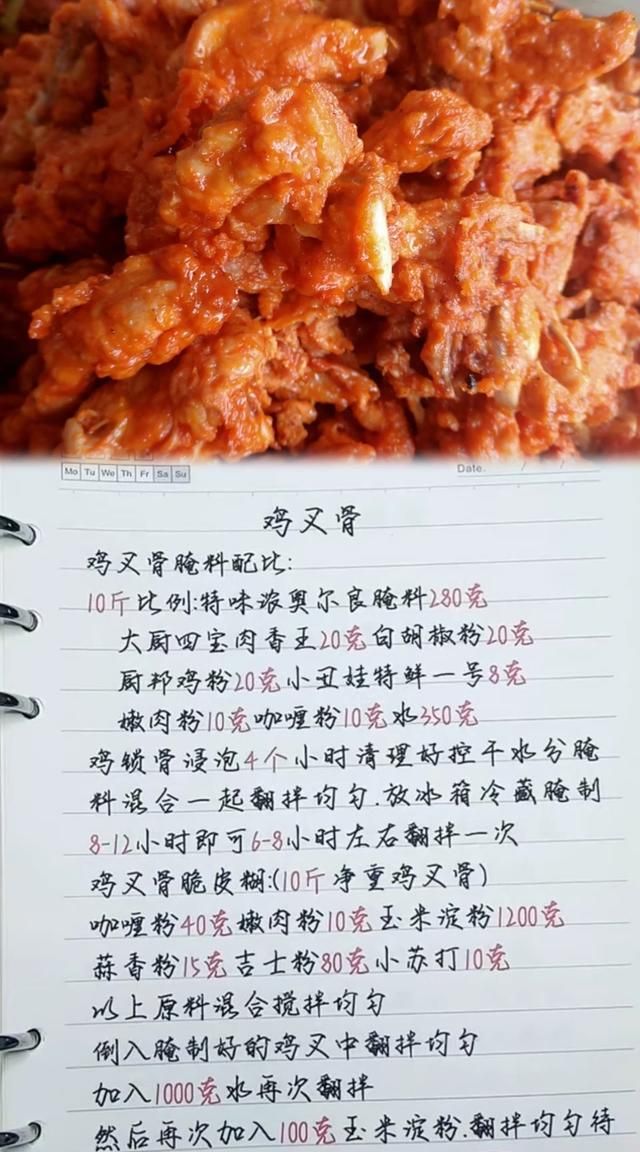 Mo Tu We Th Fr Sa Su
Date. / /
鸡叉骨
鸡叉骨腌料配比:
10斤比例:特味浓奥尔良腌料280克
大厨四宝肉香王20克白胡椒粉20克
厨邦鸡粉20克小丑娃特鲜一号8克
嫩肉粉10克咖喱粉10克水350克
鸡锁骨浸泡4个小时清理好控干水分腌
料混合一起翻拌均匀.放冰箱冷藏腌制
8-12小时即可6-8小时左右翻拌一次
鸡叉骨脆皮糊:(10斤净重鸡叉骨)
咖喱粉40克嫩肉粉10克玉米淀粉1200克
蒜香粉15克吉士粉80克小苏打10克
以上原料混合搅拌均匀
倒入腌制好的鸡叉中翻拌均匀
加入1000克水再次翻拌
然后再次加入100克玉米淀粉.翻拌均匀待